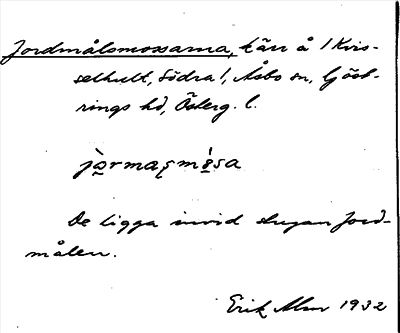 Jordmålsmossarna, kärr å /Kvis-
selhult, Södra/, Åsbo sn, Göst-
rings hd, Österg. l.
jàrmaʂmósa
De ligga invid stugan Jord-
målen.
Erik Alm 1932